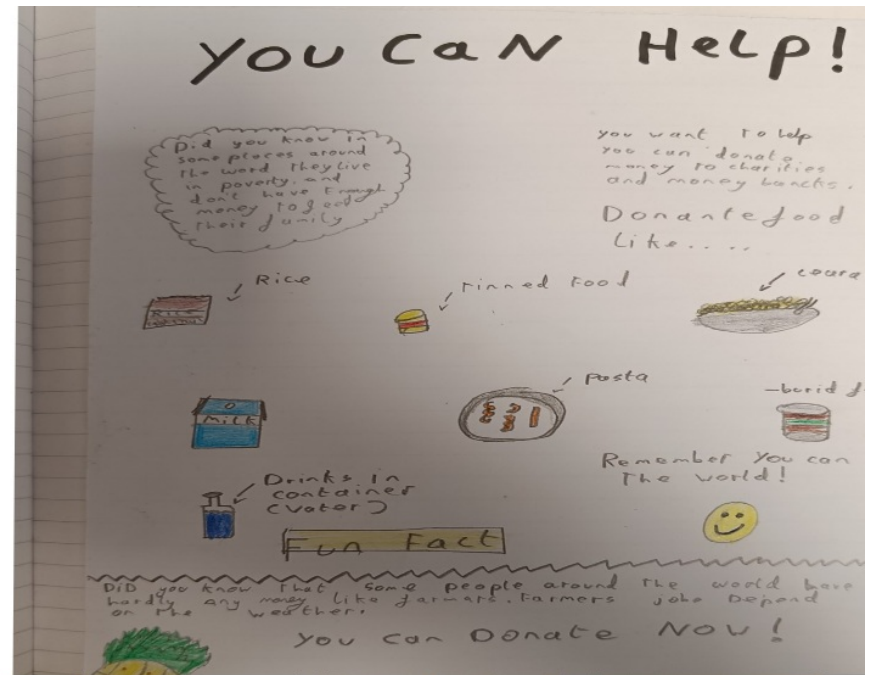 YOU CaN HeLp!
Did you know in
some places around
the word they live
in poverty, and
don't have
money to feed
their family
you want to help
you can donate
money to charities
and money bancks.
Donante food
Like.....
Rice
Rice
Tinned food
pasta
MiLK
Remember you can
The world!
Drinks in
container
Fun Fact
DiD you know that some people around the world have
hardly any money like farmars. Farmers jobe Depend
on the weather.
You can Donate Now!